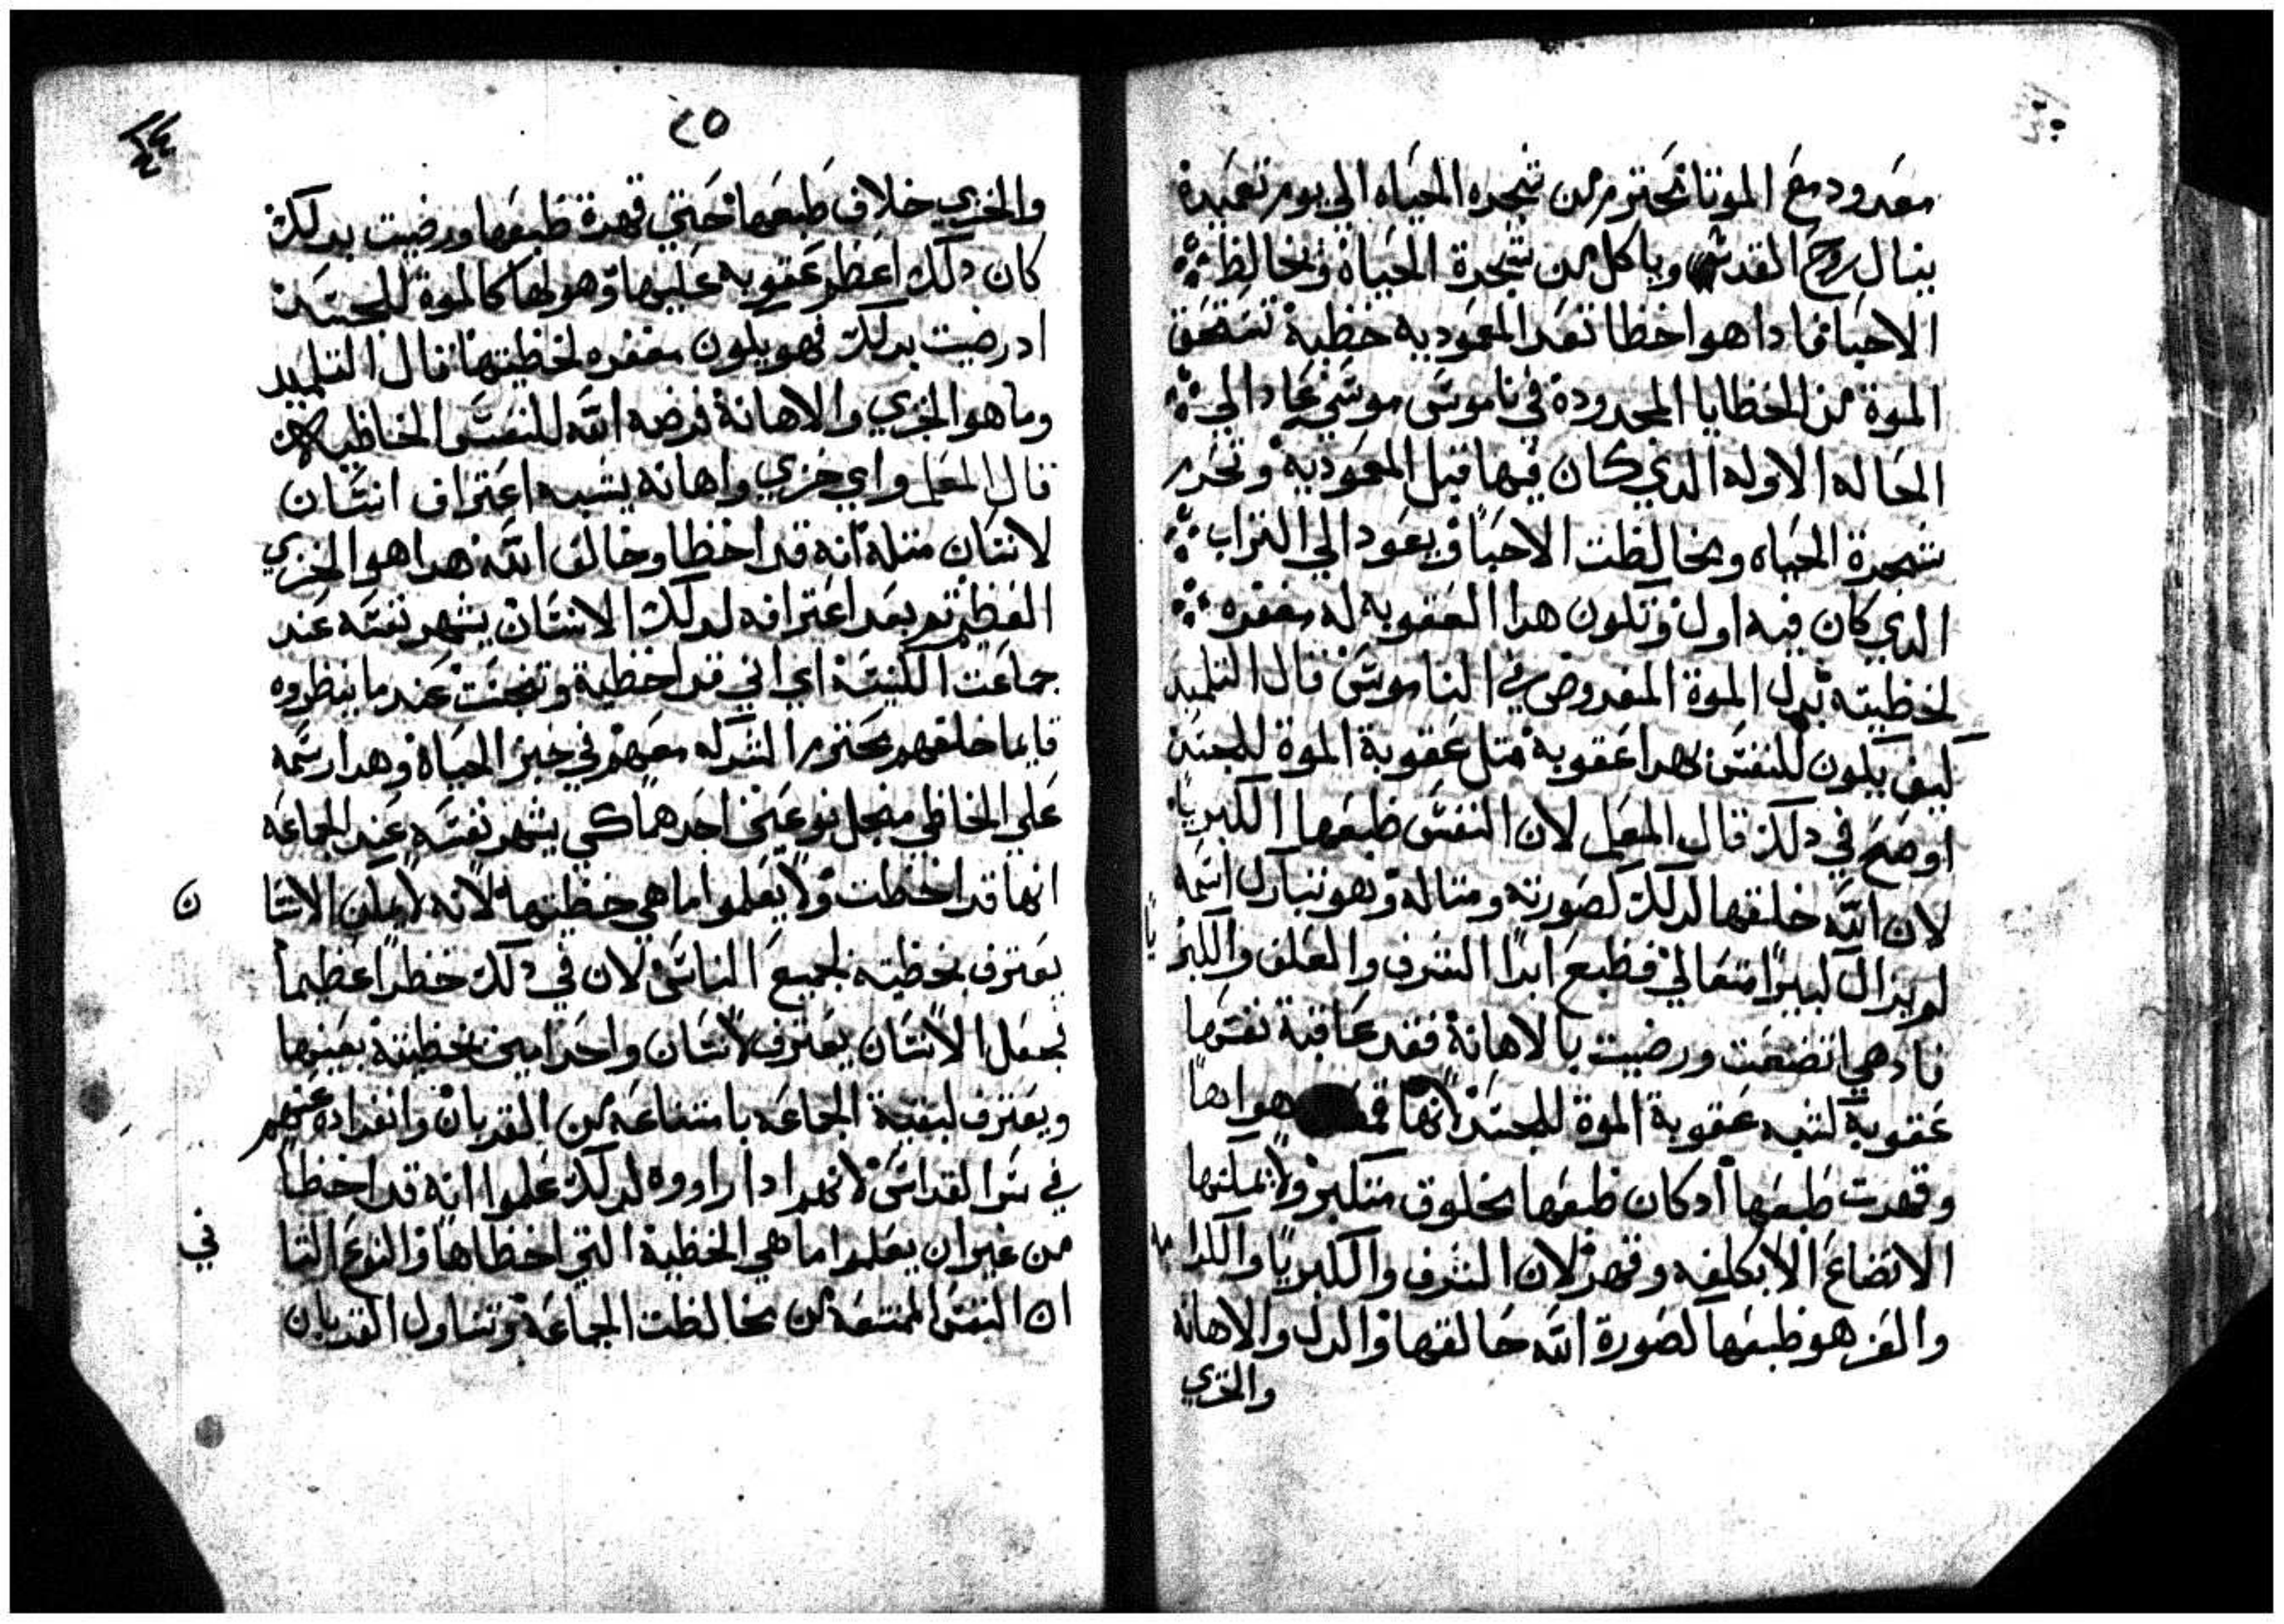 معدود مع الموتا محترم من شجره الحياه الي يوم تعميدة
ينال روح القدس وياكل من شجرة الحياة ويخالط
الاحيا فادا هوا خطا بعد المعموديه خطية تستحق
الموة من الخطايا المحدودة في ناموس موسي عاد الي
الحاله الاوله الدي كان فيها قبل المعمودية وتحرر
شجرة الحياه ومخالطت الاحيا ويعود الي التراب
الدي كان فيه اول وتكون هدا العقوبه له مغفره
لخطيته بدل الموة المفروض في الناموس قال التلميد
كيف يكون للنفس بهدا عقوبة متل عقوبة الموة للجسد
اوضح في دلك قال المعلم لان النفس طبعها الكبريا
لان الله خلقها لدلك لصورته ومتاله وهو تبارك اسمه
لم يزال كبيرا متعالي فطبع ابدا الشرف والعلف والكبريا
فادهي اتضعت ورضيت بالاهانة فقد عاقبة نفسها
عقوبة تشبه عقوبة الموة للجسد لانها هواها
وقهرت طبعها ادكان طبعها مخلوق متكبر ولا يمكنها
الاتضاع الا بكلفه وقهر لان الشرف والكبريا والكرامه
والعز هو طبعها لصورة الله خالقها والدل والاهانة
والخزي
٢٥
والخزي خلاف طبعها حتي قهرة طبعها ورضيت بدلك
كان دلك اعظم عقوبه عليها وهو لها كالموة للجسد
اد رضيت بدلك فهو يكون مغفره لخطيتها قال التلميد
وما هو الخزي والاهانة فرضه الله للنفس الخاطيه
قال المعلم واي خزي واهانه يشبه اعتراف انسان
لانسان متله انه قد اخطا وخالف الله هدا هوا الخزي
العظيم تم بعد اعترافه لدلك الانسان يشهر نفسه عند
جماعت الكنيسة اي اني قد اخطية وتنجست عند ما ينظروه
قايما خلفهم محترم الشركه معهم في خبز الحياة وهدا رسمه
علي الخاطي منجل نوعين احدهما كي يشهر نفسه عند الجماعه
انها قد اخطت ولا يعلموا ما هي خطيتها لانه لا يمكن الانسان
يعترف بخطيته لجميع الناس لان في دلك خطرا عظيما
بجعل الانسان يعترف لانسان واحد امين بخطيته بعينها
ويعترف لبقية الجماعه بامتناعه من القربان وانفراده عنهم
في سرا القداس لانهم ادا راووه لدلك علموا انه قد اخطا
من غير ان يعلموا ما هي الخطية التي اخطاها والنوع التاني
ان النفس الممتنعه من مخالطت الجماعة وتناول القربان